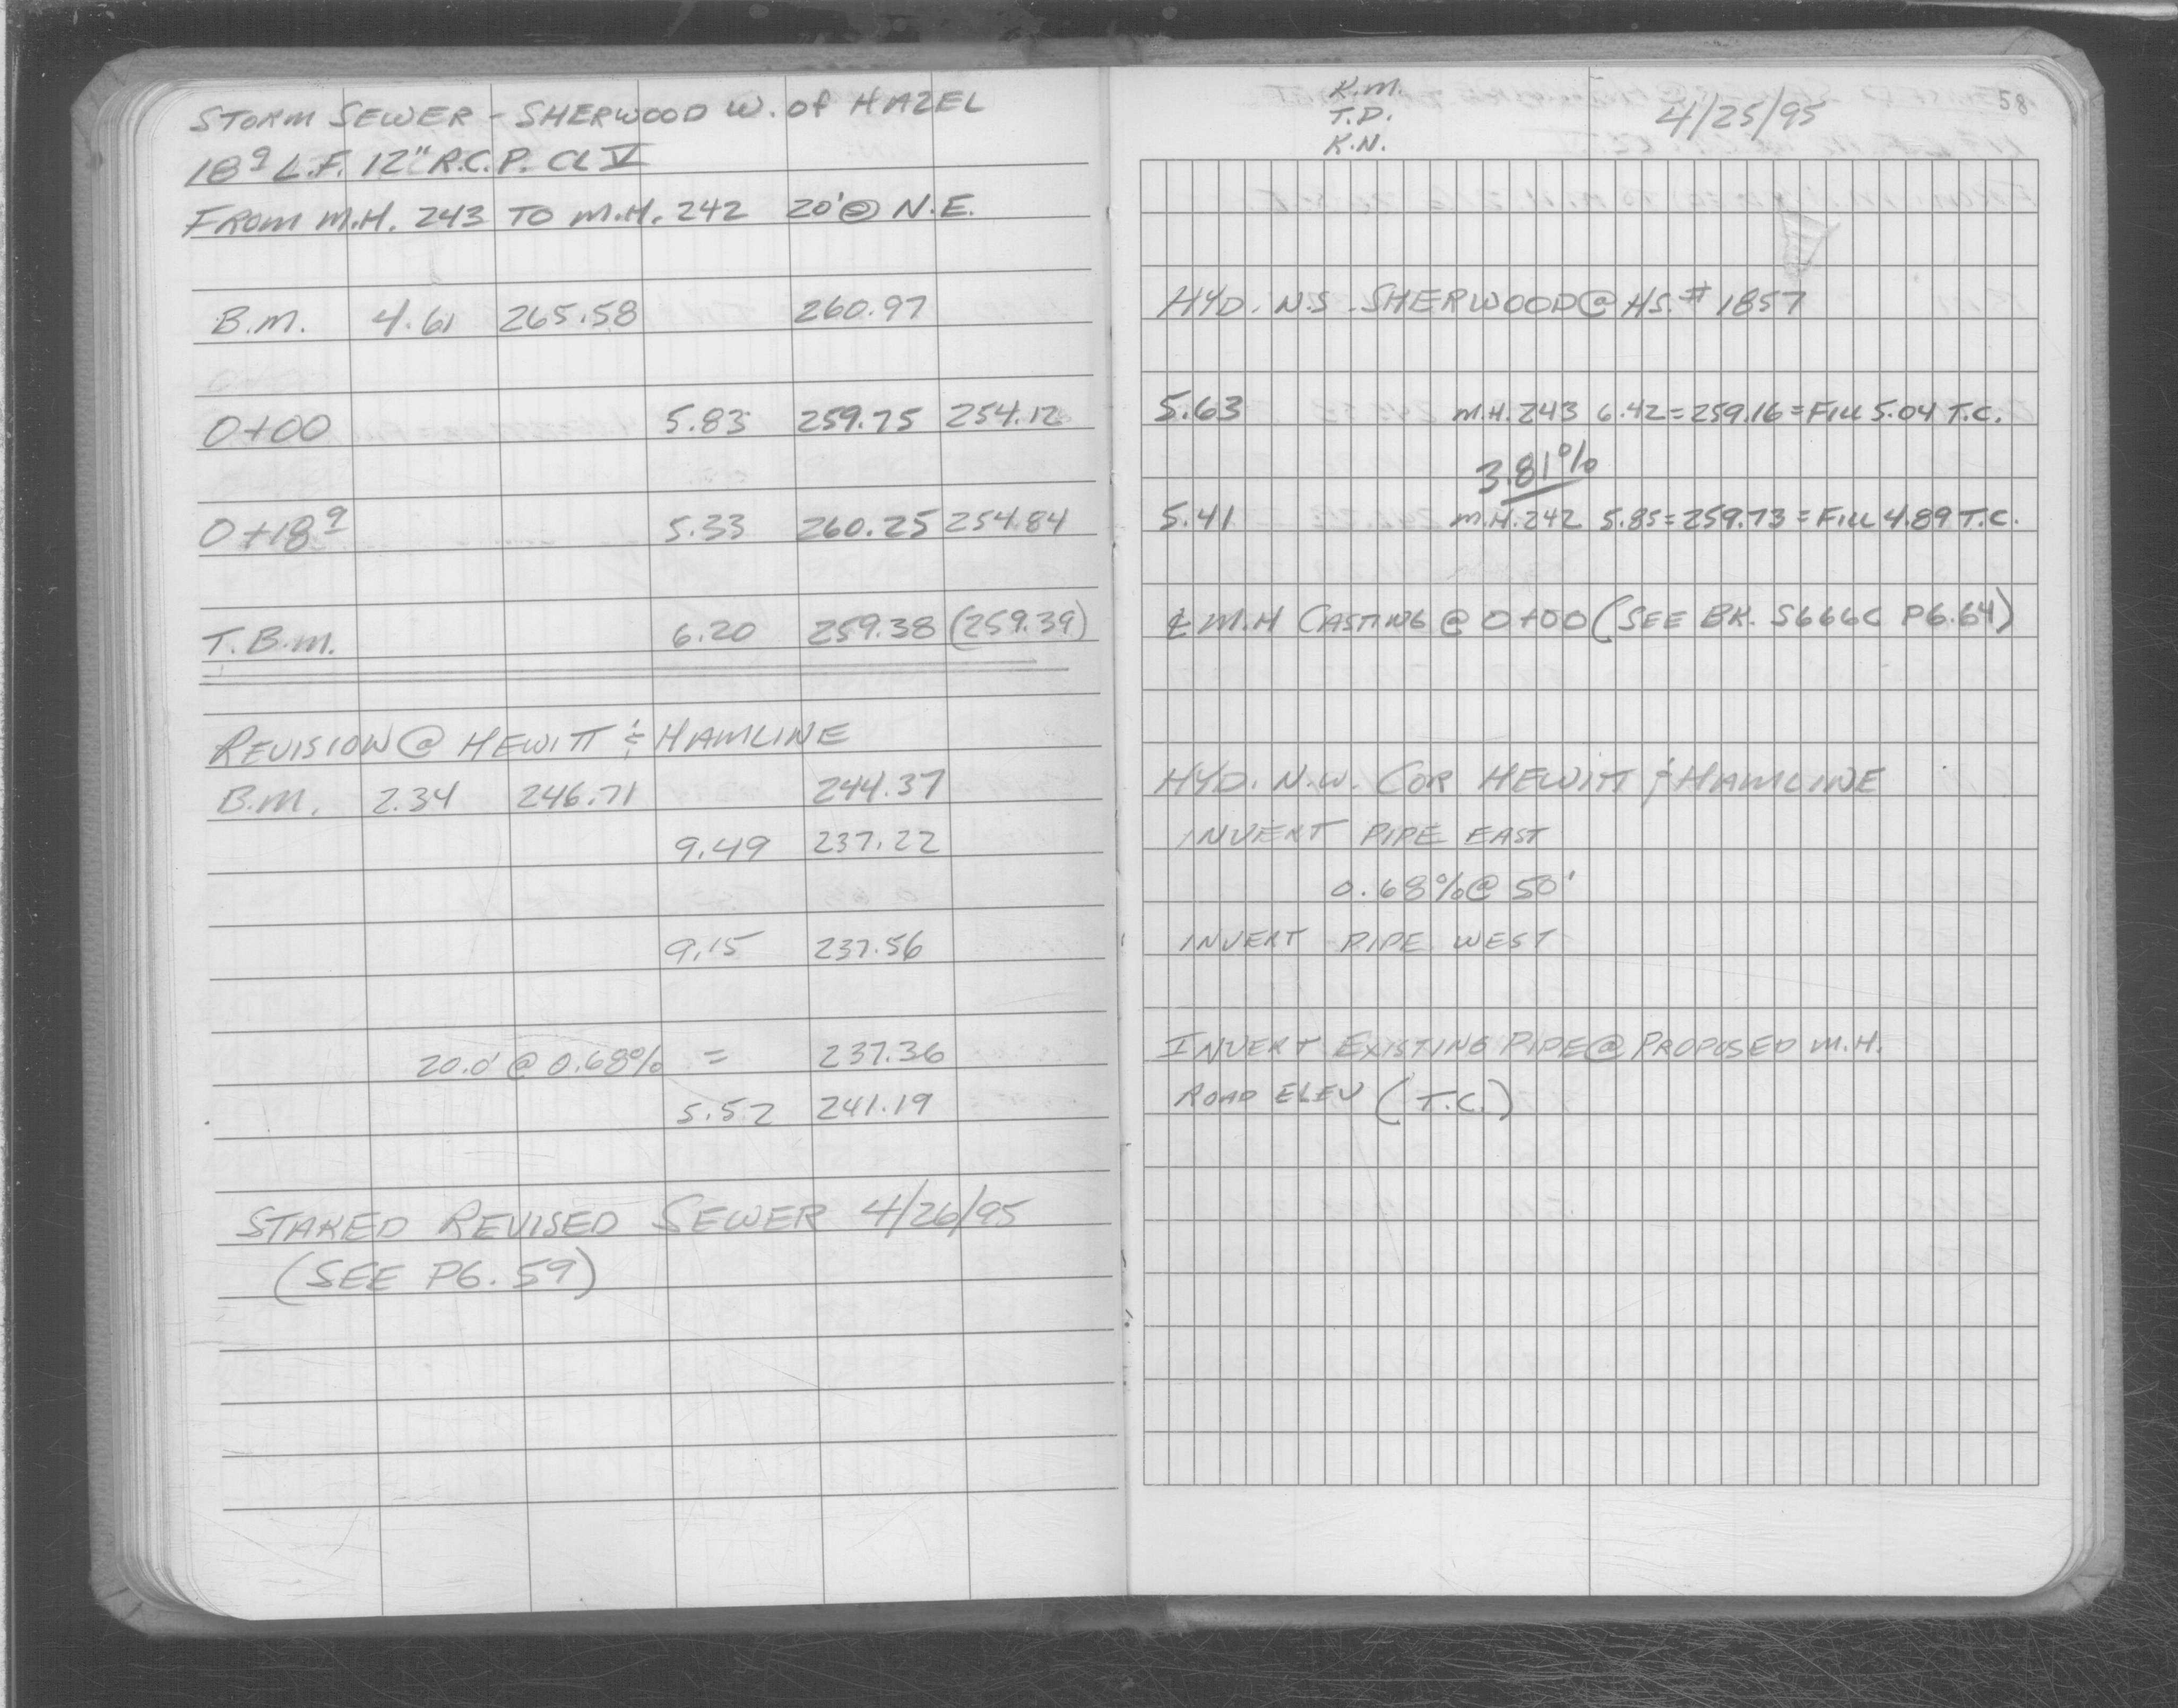 STORM SEWER - SHERWOOD W. OF HAZEL
18⁹ L.F. 12" R.C.P. CL V
FROM M.H. 243 TO M.H. 242 20' @ N.E.
B.M. 4.61 265.58 260.97
0+00 5.83 259.75 254.12
0+18⁹ 5.33 260.25 254.84
T.B.M. 6.20 259.38 (259.39)
REVISION @ HEWITT & HAMLINE
B.M. 2.34 246.71 244.37
9.49 237.22
9.15 237.56
20.0' @ 0.68% = 237.36
5.52 241.19
STAKED REVISED SEWER 4/26/95
(SEE PG. 59)
K.M.
T.D.
K.N.
4/25/95
58
HYD. N.S. SHERWOOD @ HS. # 1857
5.63 M.H. 243 6.42 = 259.16 = FILL 5.04 T.C.
3.81%
5.41 M.H. 242 5.85 = 259.73 = FILL 4.89 T.C.
℄ M.H CASTING @ 0+00 (SEE BK. S666C PG. 64)
HYD. N.W. COR HEWITT & HAMLINE
INVERT PIPE EAST
0.68% @ 50'
INVERT PIPE WEST
INVERT EXISTING PIPE @ PROPOSED M.H.
ROAD ELEV (T.C.)